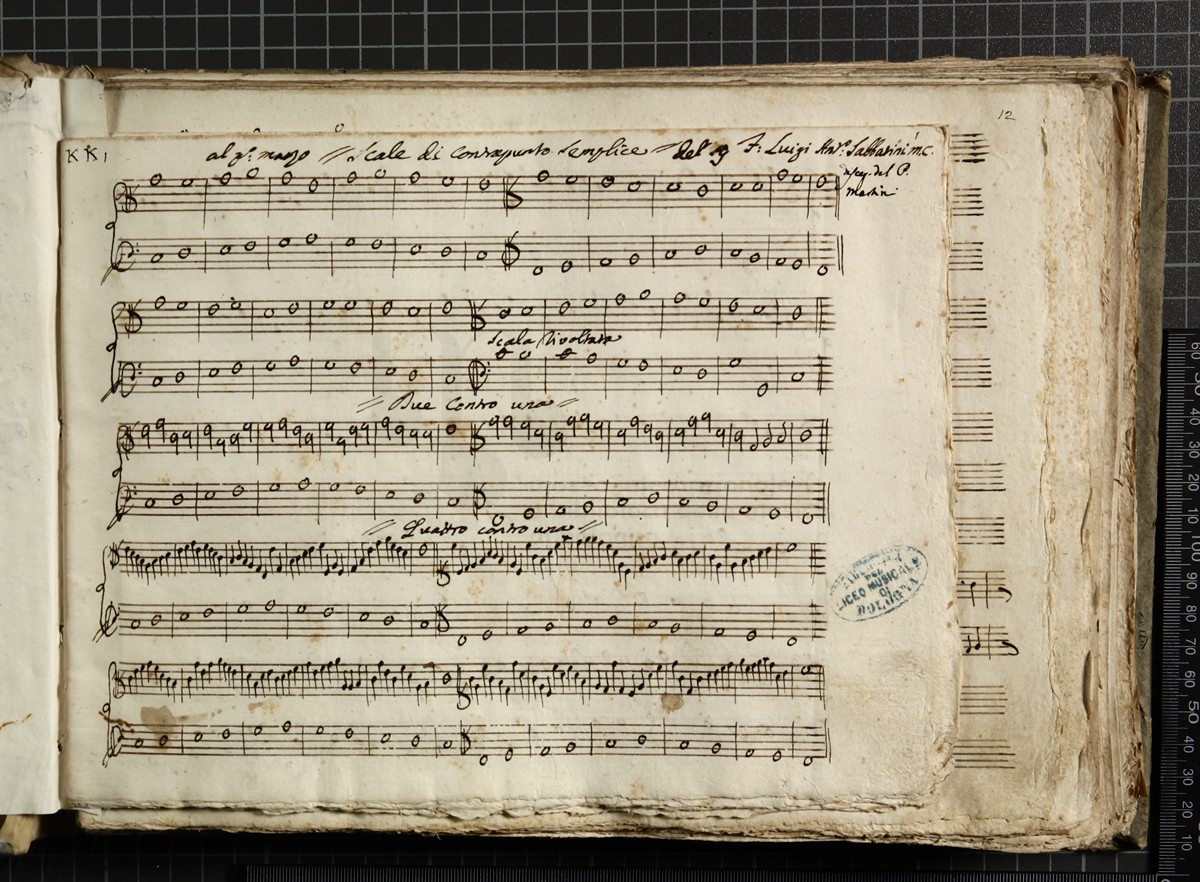 12
KK1
al 3.º mazzo // Scale di Contrapunto Semplice // Del F. Luigi Ant.º Sabbatini m.c.
del P.
Martini
Scala Rivoltata
// Due Contro una //
// Quattro contro una //
LICEO MUSICALE
DI
BOLOGNA
60 50 40 30 20 10 100 90 80 70 60 50 40 30 20 10